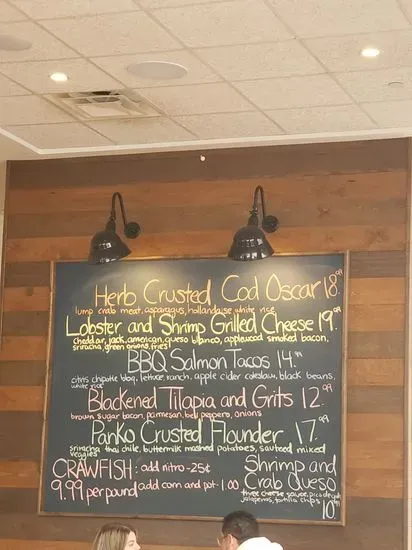 Herb Crusted Cod Oscar 18.99
lump crab meat, asparagus, hollandaise white rice
Lobster and Shrimp Grilled Cheese 19.99
cheddar, jack, american, queso blanco, applewood smoked bacon,
sriracha, green onions, fries
BBQ Salmon Tacos 14.99
citris chipotle bbq, lettuce, ranch, apple cider coleslaw, black beans,
white rice
Blackened Tilapia and Grits 12.99
brown sugar bacon, parmesan, bell peppers, onions
Panko Crusted Flounder 17.99
sriracha thai chile, buttermilk mashed potatoes, sauteed mixed
veggies
CRAWFISH: add nitro-25¢
9.99 per pound add corn and pot. 1.00
Shrimp and
Crab Queso
three cheese sauce, pico de gallo
jalapeños, tortilla chips 10.99